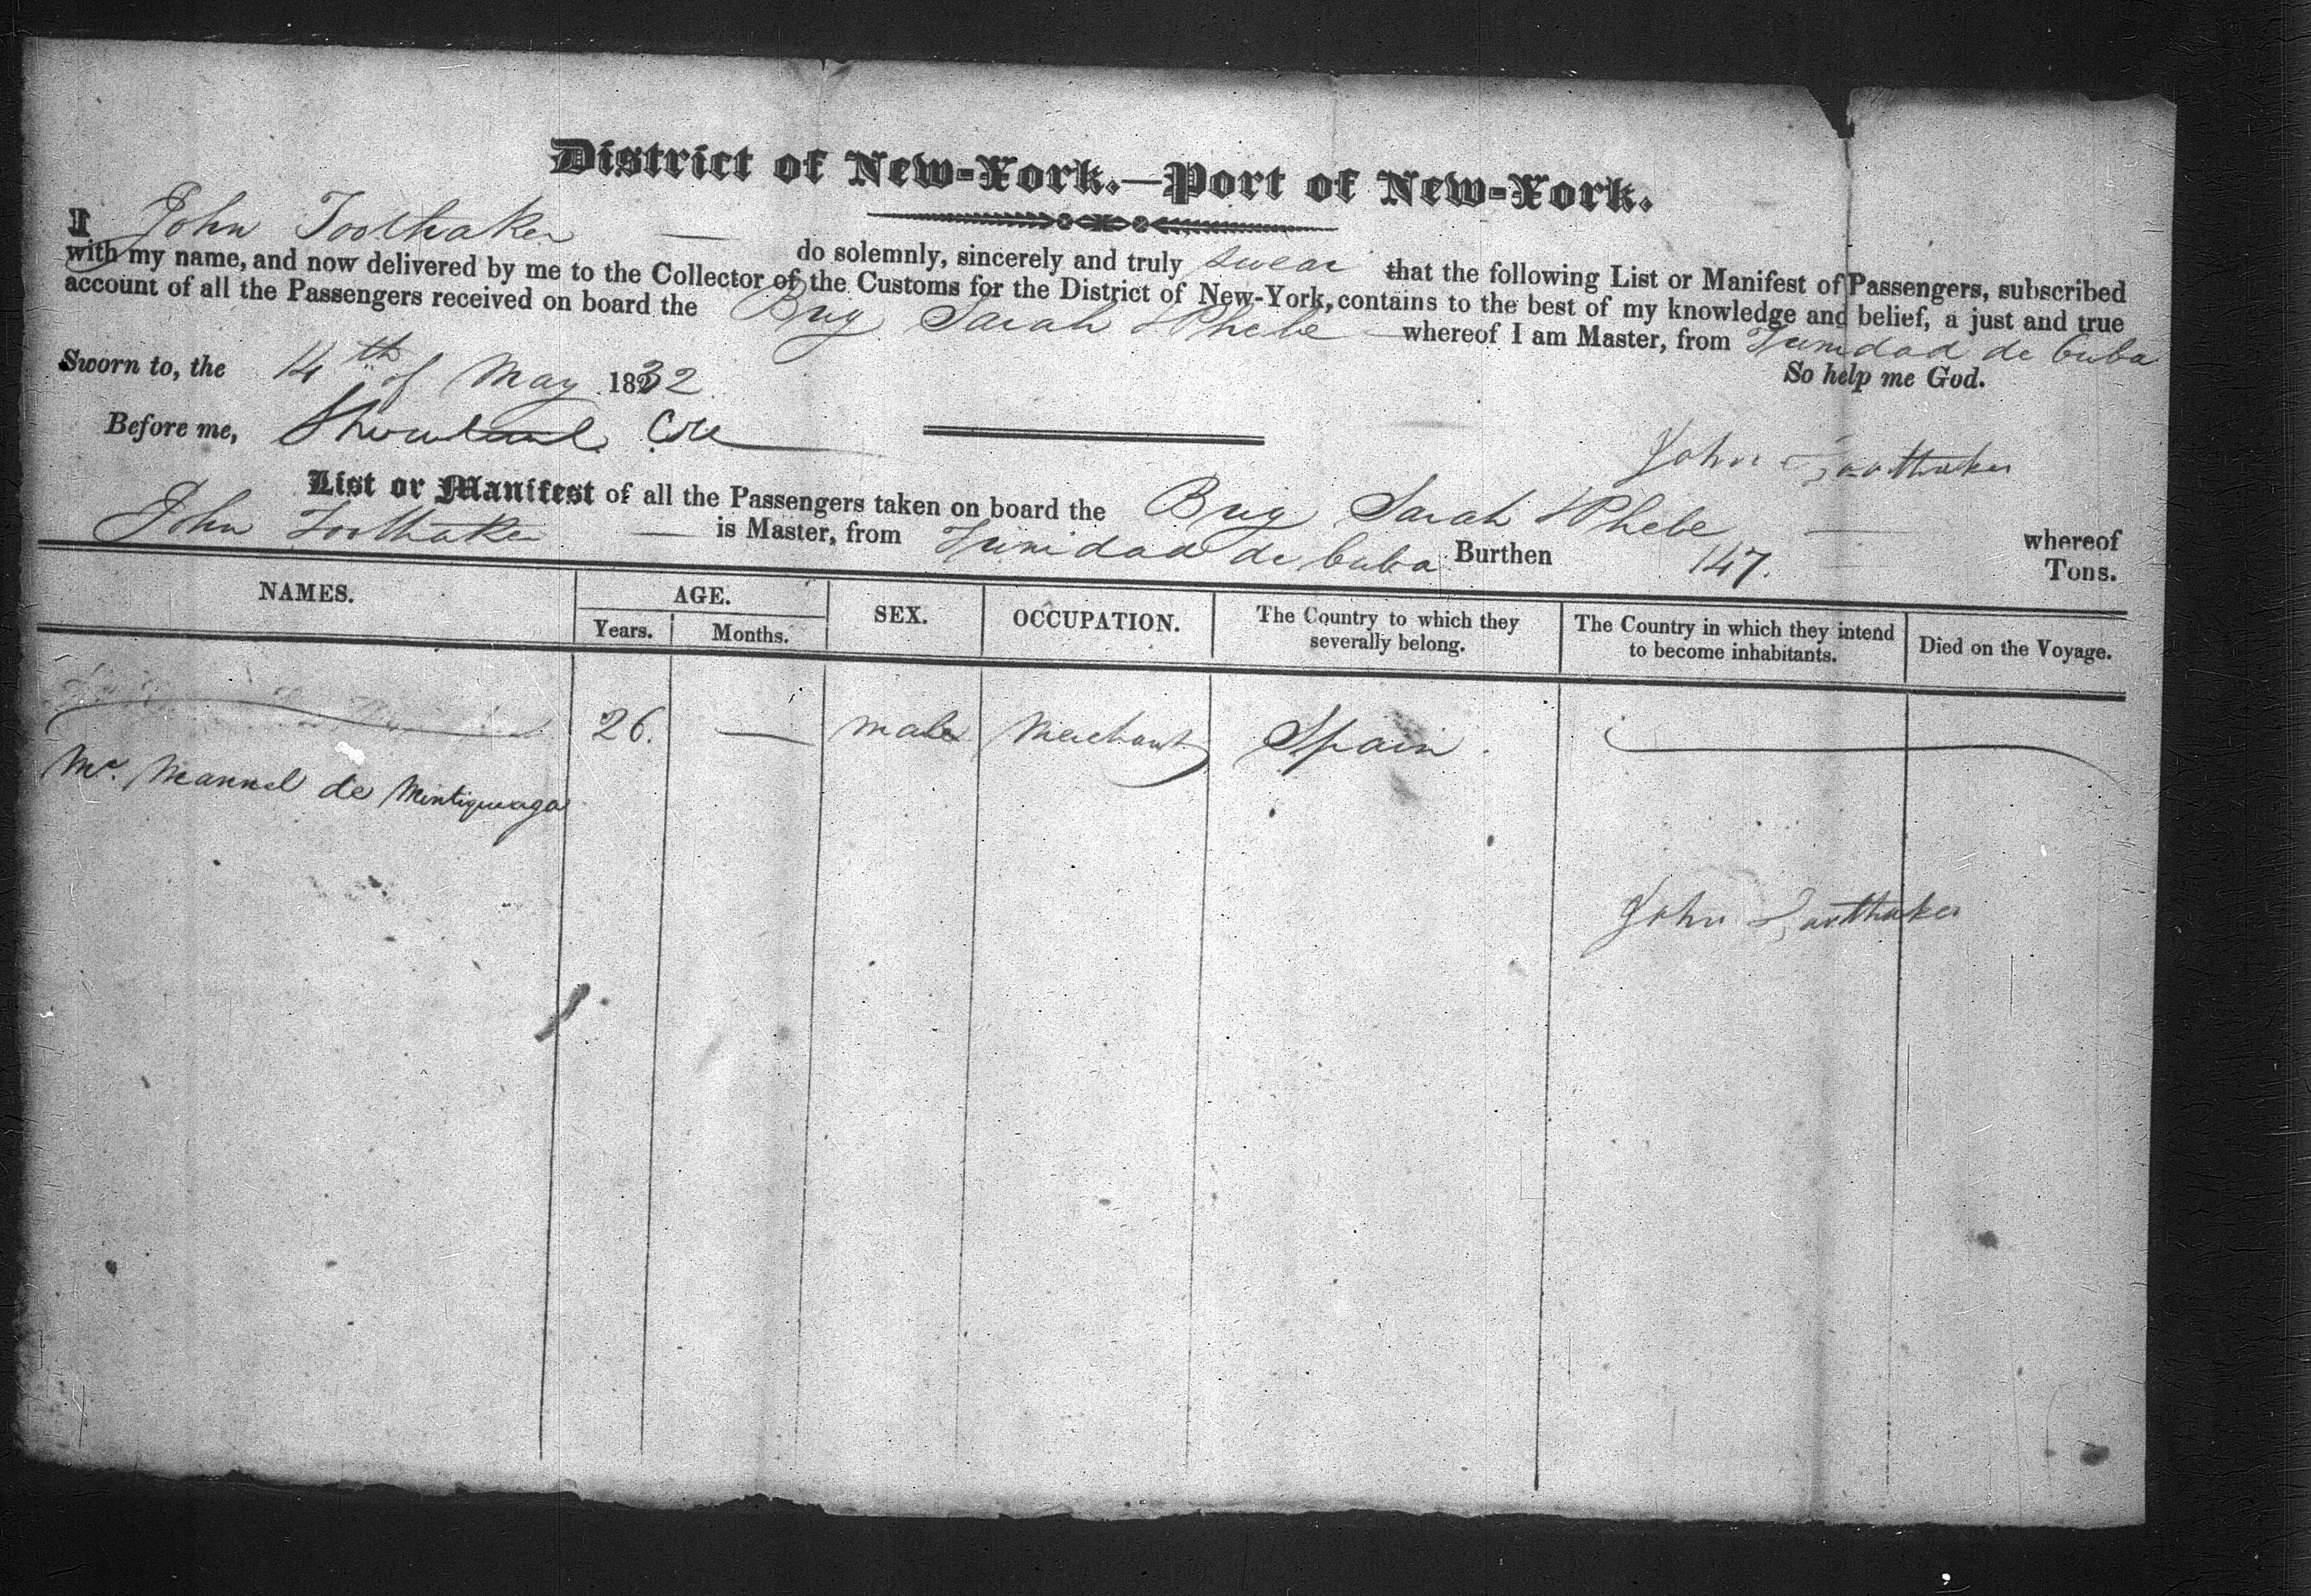 District of New-York.—Port of New-York.
I John Toothaker do solemnly, sincerely and truly swear that the following List or Manifest of Passengers, subscribed
with my name, and now delivered by me to the Collector of the Customs for the District of New-York, contains to the best of my knowledge and belief, a just and true
account of all the Passengers received on board the Brig Sarah & Phebe whereof I am Master, from Trinidad de Cuba
So help me God.
Sworn to, the 14th of May 1832
Before me,
John Toothaker
List or Manifest of all the Passengers taken on board the Brig Sarah & Phebe whereof
John Toothaker is Master, from Trinidad de Cuba Burthen 147. Tons.
NAMES. AGE. SEX. OCCUPATION. The Country to which they severally belong. The Country in which they intend to become inhabitants. Died on the Voyage.
Years. Months.
26. — male Merchant Spain.
Mr. Manuel de
John Toothaker